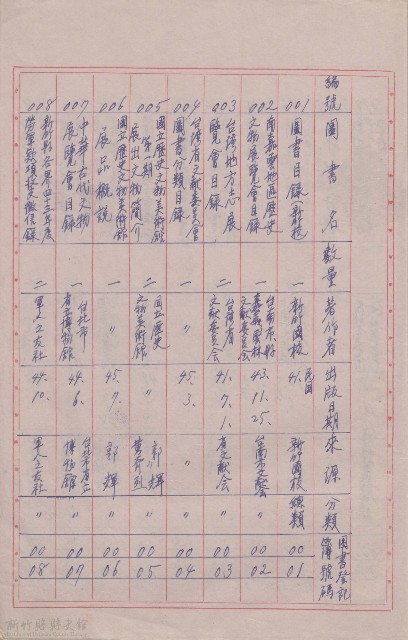 編號 圖書名 數量 著作者 出版日期 來源 分類 圖書登記簿號碼
001 圖書目錄(新竹國校 一 新竹國校 民國41. 新竹國校 總類 0001
002 南嘉雲地區歷史文物展覽會目錄 一 台南市縣嘉義雲林文獻委員會 43.11.25. 台南市文獻會 〃 0002
003 台灣地方志展覽會目錄 二 台灣省文獻委員會 41.7.1. 省文獻會 〃 0003
004 台灣省文獻委員會圖書分類目錄 一 〃 45.3. 〃 〃 0004
005 國立歷史文物美術館第一期展出文物簡介 二 國立歷史文物美術館 〃 郭輝 黃 〃 0005
006 國立歷史文物美術館展品概說 一 〃 45.7. 郭輝 〃 0006
007 中華古代文物展覽會目錄 一 台北市省立博物館 44.6. 台北市省立博物館 〃 0007
008 新竹縣各界四十三年度勞軍款項收支徵信錄 二 軍人之友社 44.10. 軍人之友社 〃 0008
新竹縣縣史館